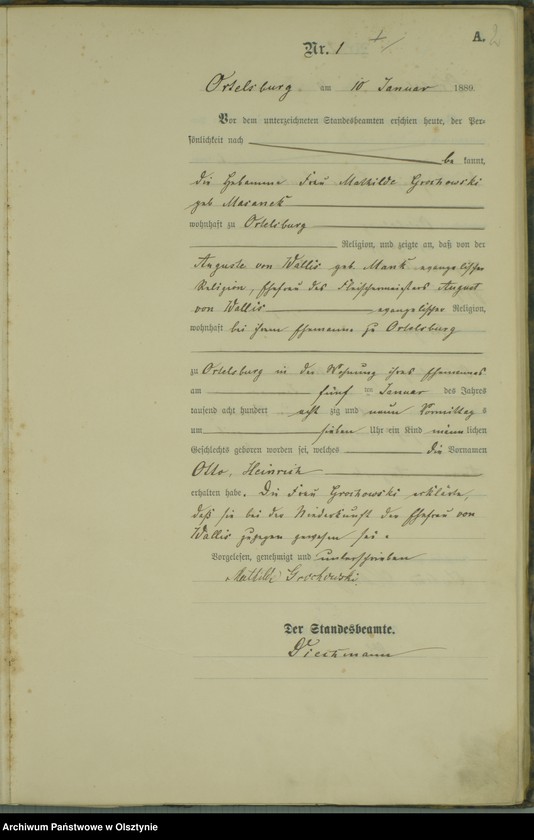 A. 2
Nr. 1
Ortelsburg am 10 Januar 1889.
Vor dem unterzeichneten Standesbeamten erschien heute, der Per-
sönlichkeit nach
be kannt,
die Hebamme Frau Mathilde Grochowski
geb Masanek
wohnhaft zu Ortelsburg
Religion, und zeigte an, daß von der
Auguste von Wallis geb Mank evangelischer
Religion, Ehefrau des Fleischermeisters August
von Wallis evangelischer Religion,
wohnhaft bei ihrem Ehemanne zu Ortelsburg
zu Ortelsburg in der Wohnung ihres Ehemannes
am fünf ten Januar des Jahres
tausend acht hundert acht zig und neun Vormittag s
um sieben Uhr ein Kind männ lichen
Geschlechts geboren worden sei, welches die Vornamen
Otto, Heinrich
erhalten habe. Die Frau Grochowski erklärte,
daß sie bei der Niederkunft der Ehefrau von
Wallis zugegen gewesen sei.
Vorgelesen, genehmigt und unterschrieben
Mathilde Grochowski.
Der Standesbeamte.
Archiwum Państwowe w Olsztynie